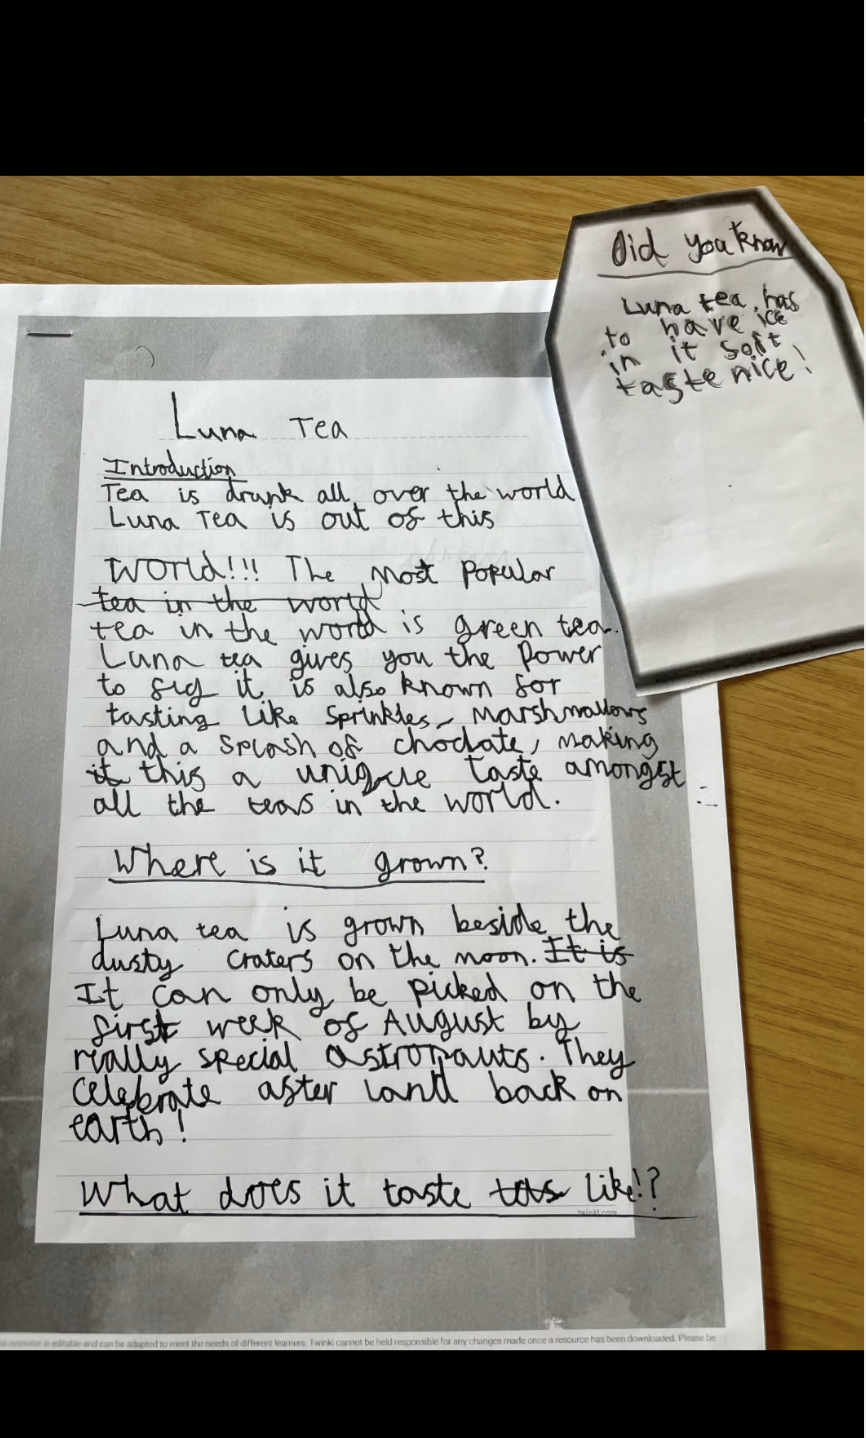 Did you know
Luna tea has
to have ice
in it so it
taste nice!
Luna Tea
Introduction
Tea is drunk all over the world
Luna Tea is out of this
WORld!!! The Most Popular
tea in the world
tea in the world is green tea.
Luna tea gives you the Power
to fly it is also known for
tasting like sprinkles, Marshmallows
and a splash of choclate, making
it this a unique taste amongst
all the teas in the world.
Where is it grown?
Luna tea is grown beside the
dusty craters on the moon. It is
It can only be picked on the
first week of August by
really special astronauts. They
celebrate after land back on
earth!
What does it taste tas like!?
twinkl.com
resource is editable and can be adapted to meet the needs of different learners. Twinkl cannot be held responsible for any changes made once a resource has been downloaded. Please be